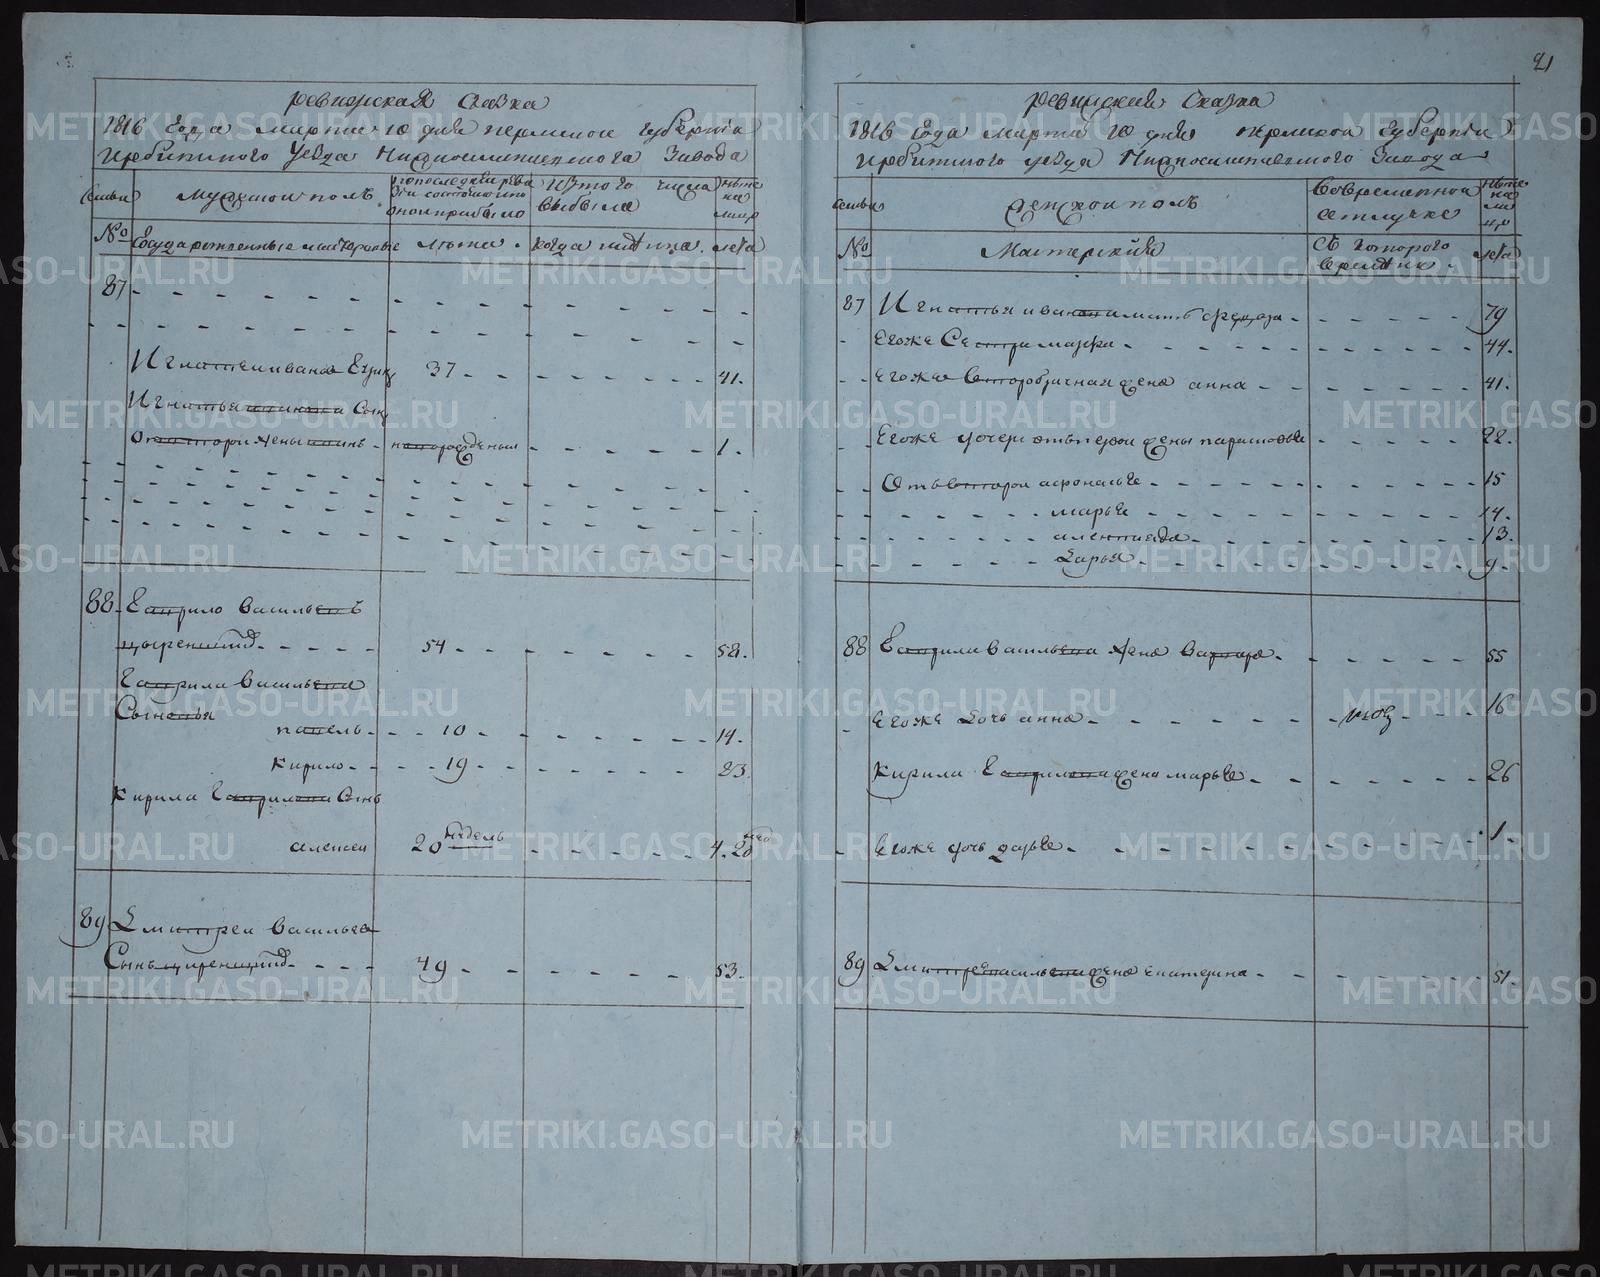 21
Ревизская Сказка
1816 Года Марта 10 дня Пермской Губернии
Ирбитского Уезда Нижносинячихинского Завода
семьи
Мужской полъ
Изтого числа
выбыло
ныне
на
лицо
№
Государственные мастеровые
лета
когда именно
лета
87
Игнатей Иванов
37
41.
Игнатья Иванова Сынъ
От второй жены
новорожденный
1.
88
Гаврило Васильевъ
54
58.
Гаврила Васильева
Сыновья
Павелъ
10
14.
Кирило
19
23
Кирила Гаврилова Сынъ
Алексей
20 недель
4. 20 нед
89
Дмитрей Васильев
Сынъ
49
53.
Ревизская Сказка
1816 Года Марта 10 дня Пермской Губернии
Ирбитского уезда Нижносинячихинского Завода
семьи
Женской полъ
Вовременной
отлучке
ныне
на
ли
цо
№
Мастерския
Съ которого
времени
лета
87
Игнатья Иванова мать
79
Егоже Сестра Марфа
44.
Егоже второбрачная жена Анна
41.
Егоже дочери отъ первой жены
22.
Отъ второй
15
Марья
14.
13.
Дарья
9.
88
Гаврила Васильева жена Варвара
55
Егоже дочь Анна
16
Кирила Гаврилова жена Марья
26
Егоже дочь Дарья
1
89
Дмитрея Васильева жена Екатерина
51.
METRIKI.GASO-URAL.RU